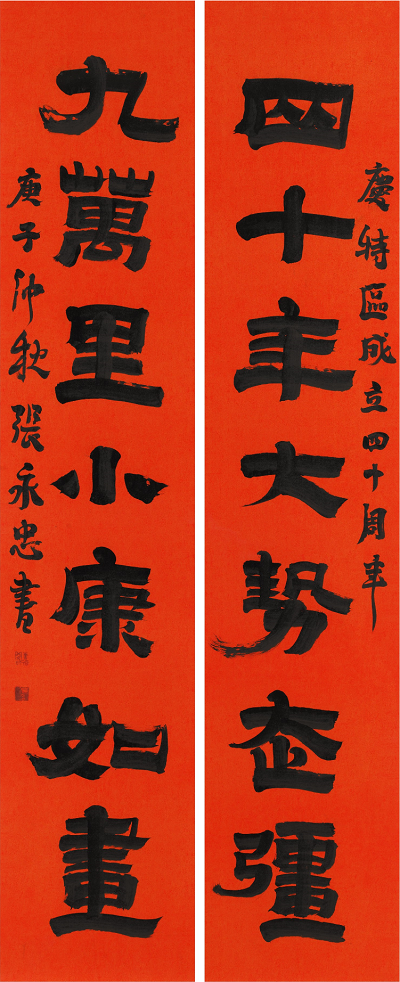 慶特區成立四十周年
四十年大勢走彊
九萬里小康如畫
庚子仲秋張永忠書